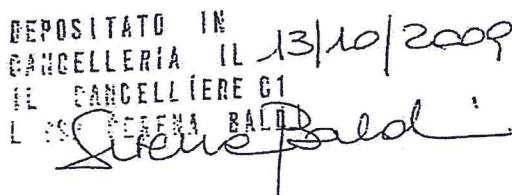 DEPOSITATO IN
CANCELLERIA IL 13/10/2009
IL CANCELLIERE C1
SERENA BALDI
Serena Baldi